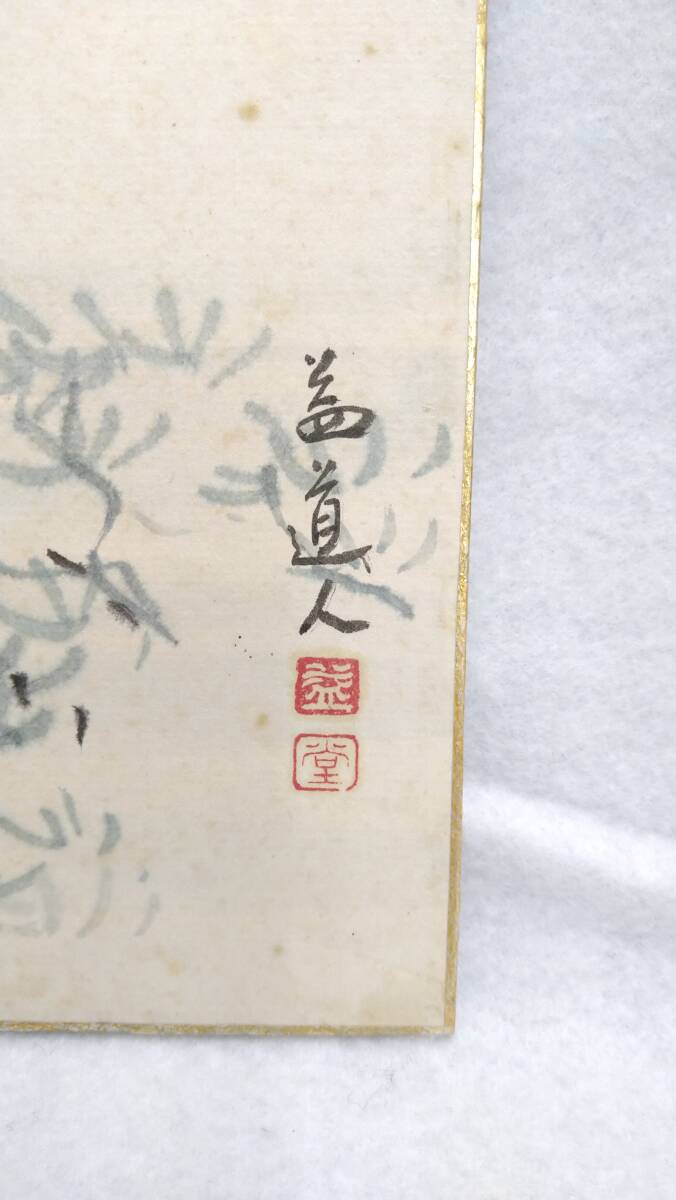 益道人
益
堂